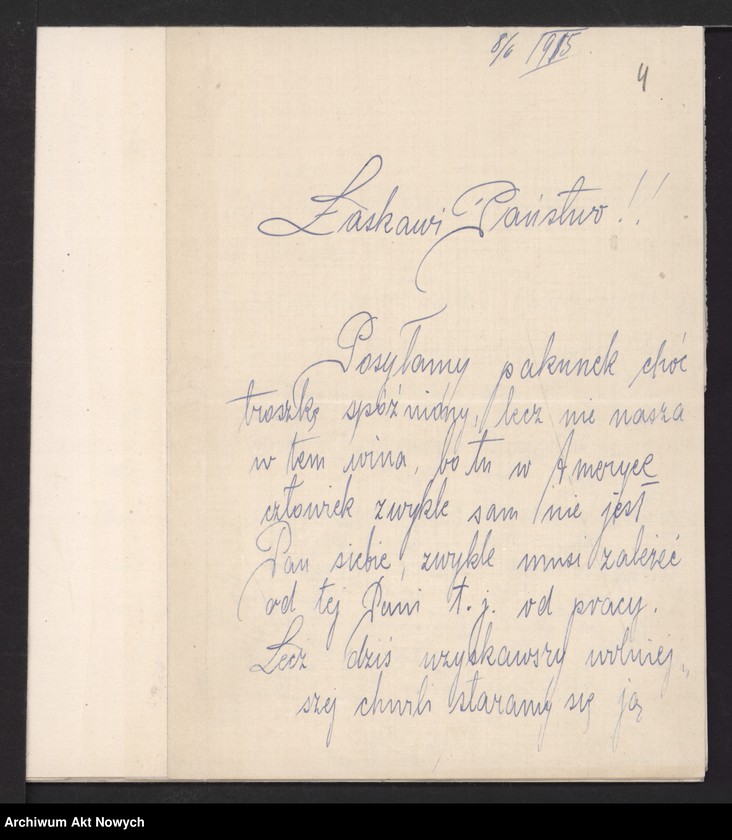 8/6 1915
4
Łaskawi Państwo!!
Posyłamy pakunek choć
troszkę spóźniony, lecz nie nasza
w tem wina, bo tu w Ameryce
człowiek zwykle sam nie jest
Pan siebie, zwykle musi zależeć
od tej Pani t.j. od pracy.
Lecz dziś uzyskawszy wolniej„
szej chwili staramy się ją
Archiwum Akt Nowych